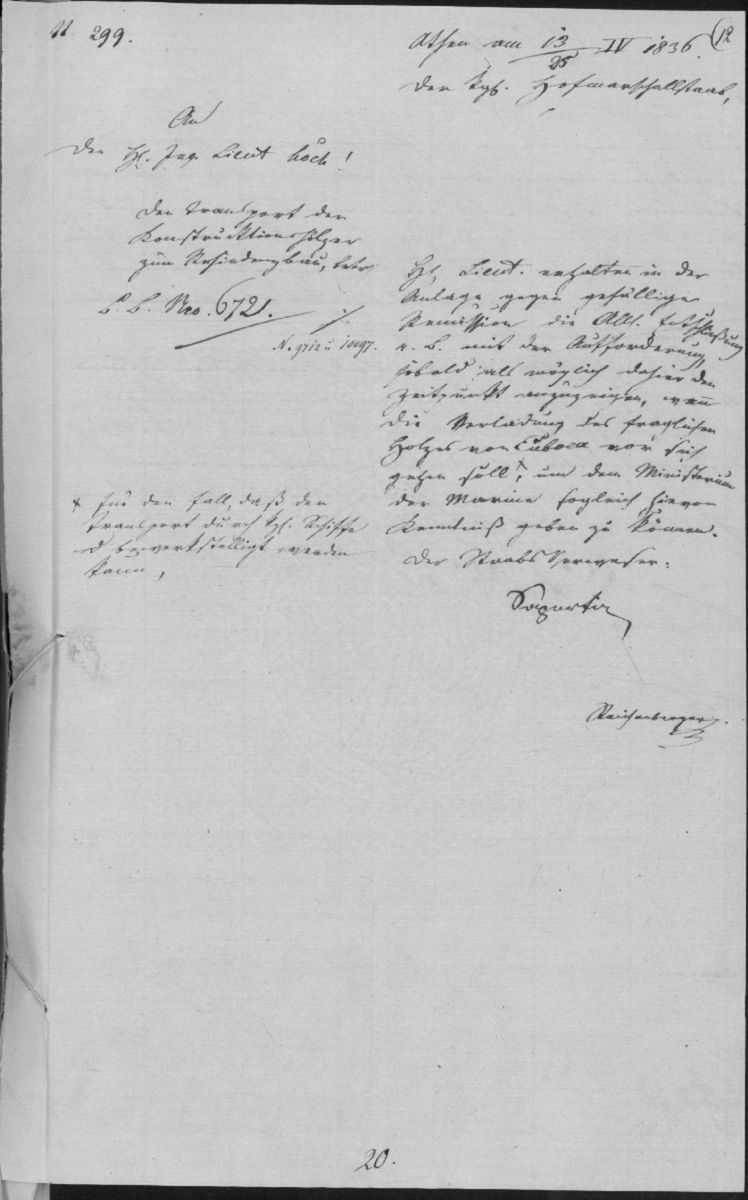 N. 299.
Athen am 13/25 IV 1836.
12
Der kgl. Hofmarschallstaab,
An
den H. Ing. Lieut Hoch!
Den Transport der
Konstrucktionshölzer
zum Residenzbau, betr
b. b. Nro. 6721.
N. 9712 u 10097.
H. Lieut. erhalten in der
Anlage gegen gefällige
Remission die Allh. Entschließung
a. b. mit der Aufforderung,
sobald als möglich dahier den
Zeitpunkt anzuzeigen, wann
die Verladung des fraglichen
Holzes von Euboea vor sich
gehen soll +, um dem Ministerium
der Marine sogleich hievon
Kenntniß geben zu können.
Der Staabs Verweser:
+ für den Fall, daß der
Transport durch kgl. Schiffe
bewerkstelligt werden
kann,
Saporta
Reichenberger.
20.